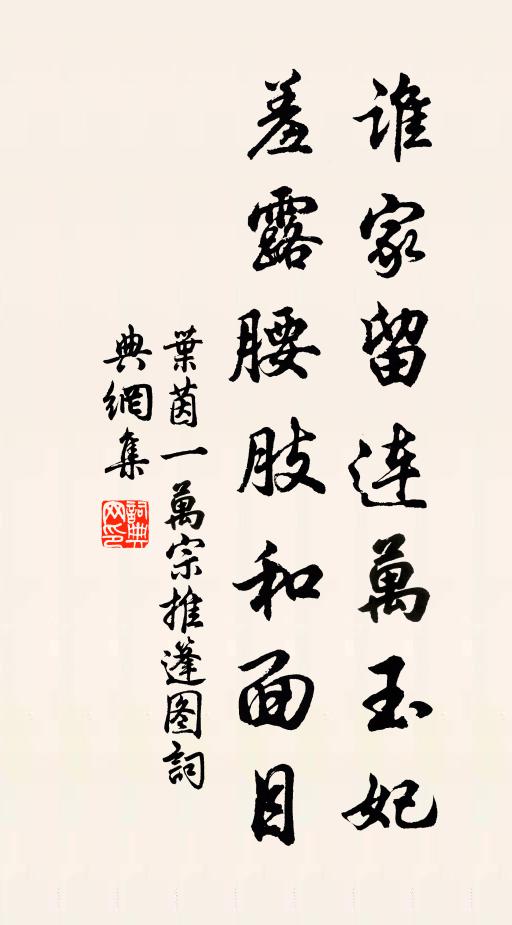 誰家留連萬玉妃
羞露腰肢和面目
葉茵一萬宗推篷图詞
典網集
詞典
网印